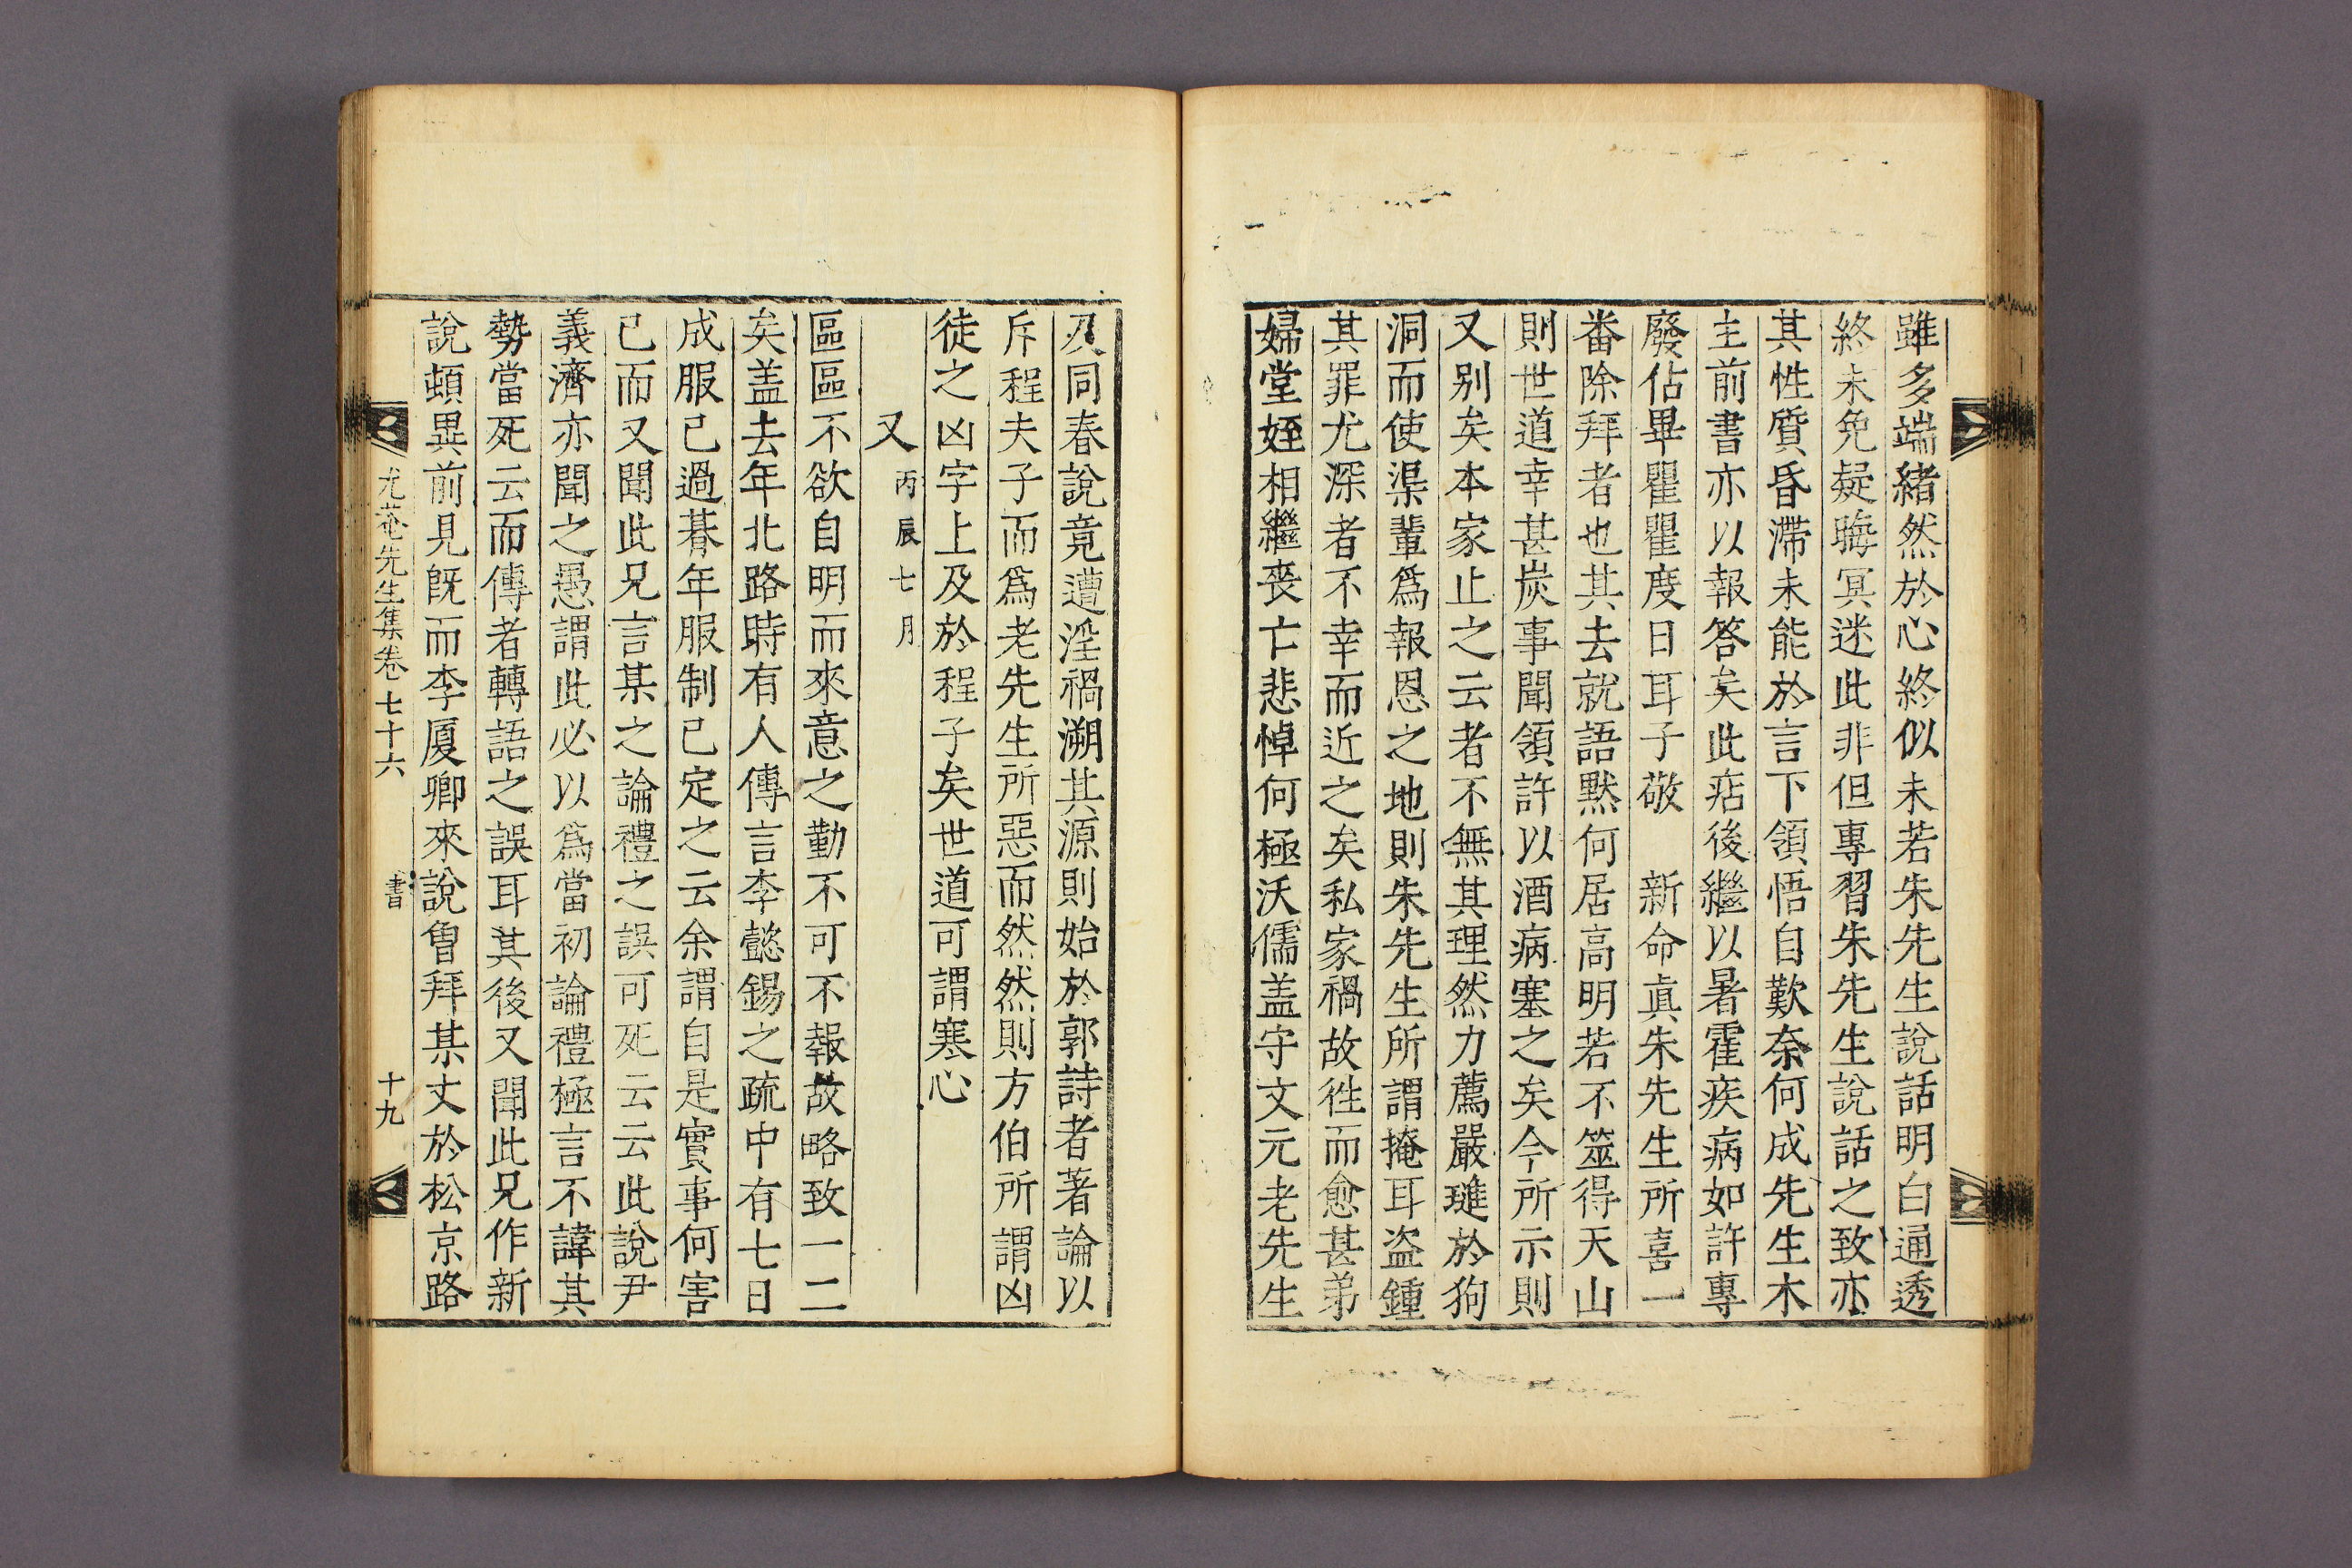 雖多端緖然於心終似未若朱先生說話明白通透
終未免疑晦冥迷此非但專習朱先生說話之致亦
其性質昏滯未能於言下領悟自歎奈何成先生木
主前書亦以報答矣此痁後繼以暑霍疾病如許專
廢佔畢瞿瞿度日耳子敬 新命眞朱先生所喜一
番除拜者也其去就語默何居高明若不筮得天山
則世道幸甚炭事聞領許以酒病塞之矣今所示則
又别矣本家止之云者不無其理然力薦嚴璡於狗
洞而使渠輩爲報恩之地則朱先生所謂掩耳盗鍾
其罪尤深者不幸而近之矣私家禍故徃而愈甚弟
婦堂姪相繼喪亡悲悼何極沃儒盖守文元老先生
及同春說竟遭淫禍溯其源則始於郭詩者著論以
斥程夫子而爲老先生所惡而然然則方伯所謂凶
徒之凶字上及於程子矣世道可謂寒心
又 丙辰七月
區區不欲自明而來意之勤不可不報故略致一二
矣盖去年北路時有人傳言李懿錫之疏中有七日
成服已過朞年服制已定之云余謂自是實事何害
已而又聞此兄言某之論禮之誤可死云云此說尹
義濟亦聞之愚謂此必以爲當初論禮極言不諱其
勢當死云而傳者轉語之誤耳其後又聞此兄作新
說頓異前見旣而李厦卿來說曾拜某丈於松京路
尤菴先生集卷七十六 書 十九